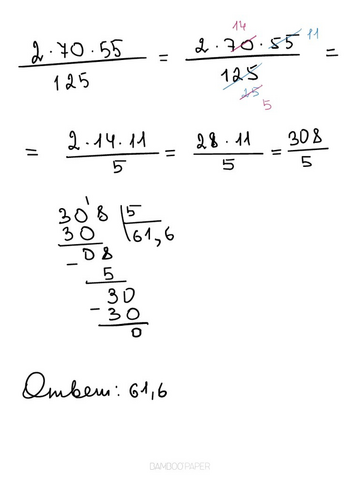 2·70·55 / 125 = 2·70·55 / 125 =
14 11
15
5
= 2·14·11 / 5 = 28·11 / 5 = 308 / 5
308 | 5
30 | 61,6
- 08
5
30
- 30
0
Ответ: 61,6
BAMBOO PAPER